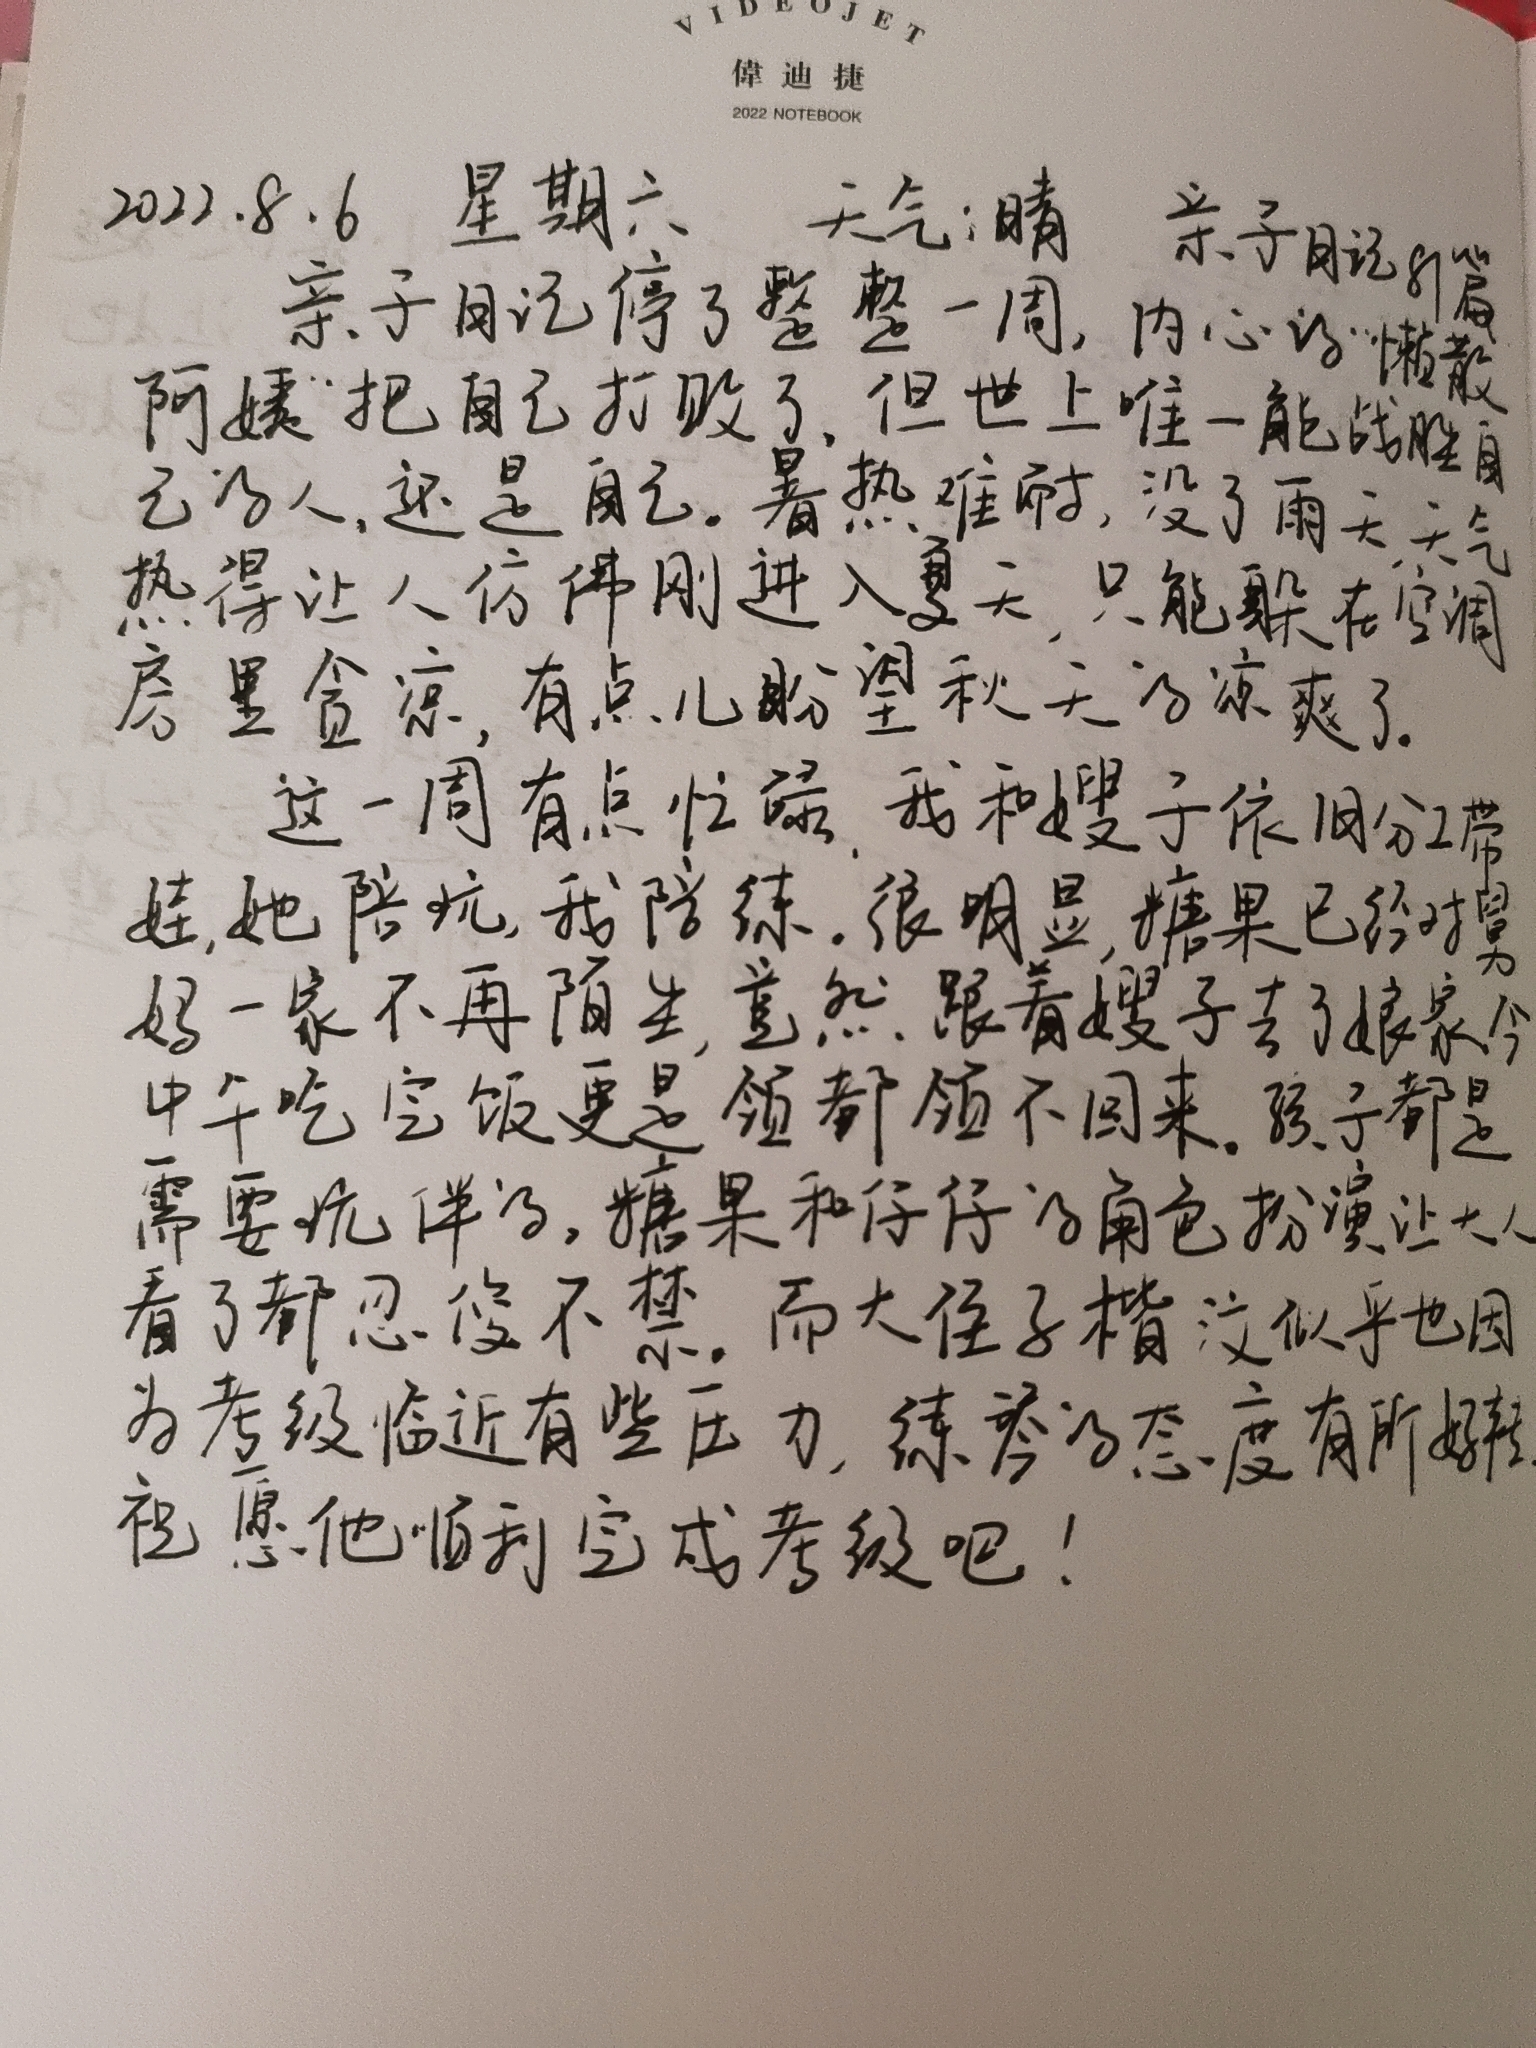 VIDEOJET
偉迪捷
2022 NOTEBOOK
2022.8.6 星期六 天气:晴 亲子日记81篇
亲子日记停了整整一周,内心的“懒散
阿姨”把自己打败了,但世上唯一能战胜自
己的人,还是自己。暑热难耐,没了雨天,天气
热得让人仿佛刚进入夏天,只能躲在空调
房里贪凉,有点儿盼望秋天的凉爽了。
这一周有点忙碌,我和嫂子依旧分工带
娃,她陪玩,我陪练。很明显,糖果已经对舅
妈一家不再陌生,竟然跟着嫂子去了娘家,今
中午吃完饭更是领都领不回来。孩子都是
需要玩伴的,糖果和仔仔的角色扮演让大人
看了都忍俊不禁。而大侄子楷汶似乎也因
为考级临近有些压力,练琴的态度有所好转,
祝愿他顺利完成考级吧!